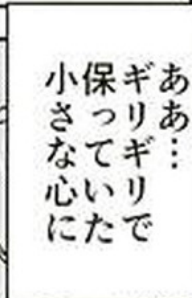 ああ…
ギリギリで
保っていた
小さな心に